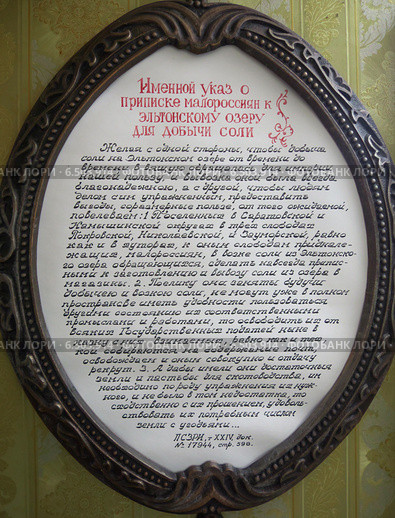 Именной указ о
приписке малороссиян к
эльтонскому озеру
для добычи соли
Желая с одной стороны, чтобы добыча
соли на Эльтонском озере от времени до
времени в
пользу и вывозка оной была всегда
благонадежною, а с другой, чтобы людям
делом сим упражненным, предоставить
выгоды, соразмерные пользе, от того ожидаемой,
повелеваем: 1. Поселенных в Саратовской и
Камышинской округах в трех слободах
Покровской, Николаевской, и Узморской, равно
как и в хуторах, к оным слободам принадле-
жащих, малороссиян, в возке соли из Эльтонско-
го озера обращающихся, сделать навсегда припис-
ными к заготовлению и вывозу соли из озера в
магазины. 2. Поелику они заняты будучи
добычею и возкою соли, не могут уже в полном
пространстве иметь удобности пользоваться
другими состоянию их соответственными
промыслами и работами, то освободить их от
взимания Государственных податей ныне в
казну с них равно как и та-
кой собирается на содержание
освобождаем и оным совокупно и отдачу
рекрут. 3. А дабы имели они достаточные
земли и пастьбы для скотоводства, им
необходимо по роду упражнения их нуж-
ного, и не было в том недостатка, то
сходственно с их прошением, удоволь-
ствовать их потребным числом
земли с угодьями...
ПСЗРИ, т XXIV, док.
№ 17944, стр. 598.